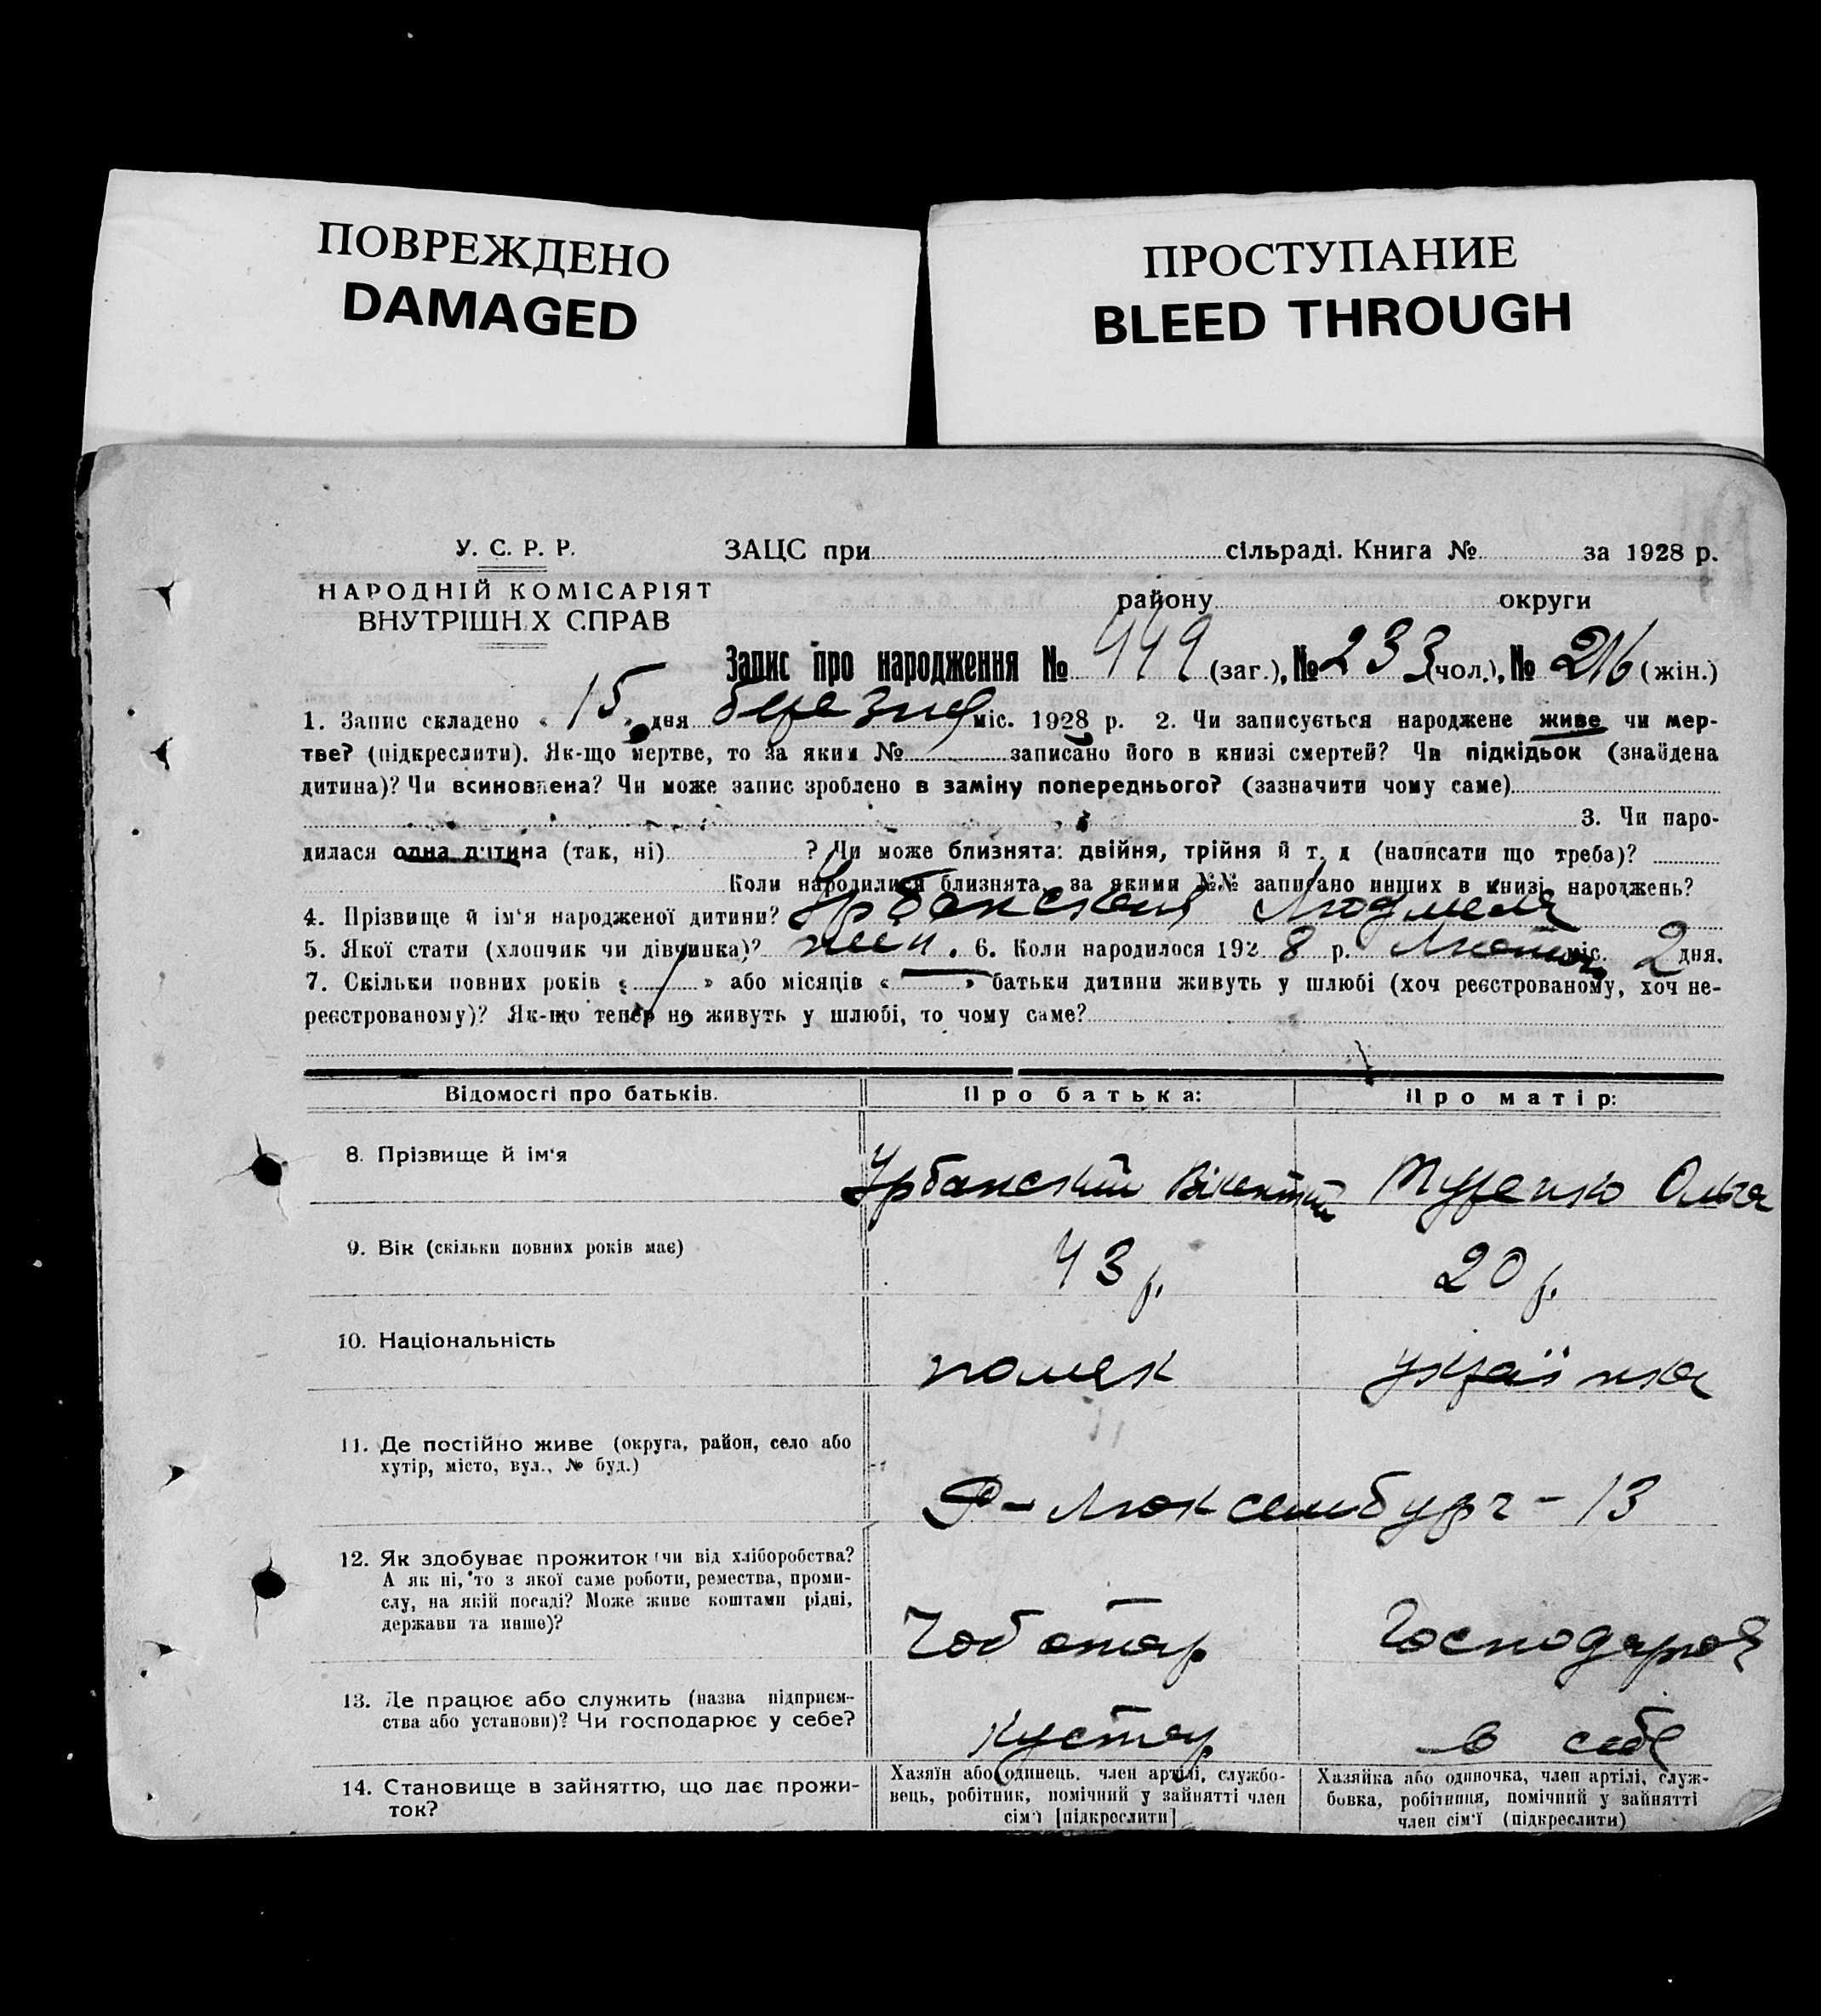 ПОВРЕЖДЕНО
DAMAGED
ПРОСТУПАНИЕ
BLEED THROUGH
У. С. Р. Р.
ЗАЦС при сільраді. Книга № за 1928 р.
НАРОДНІЙ КОМІСАРІЯТ
району округи
ВНУТРІШН Х СПРАВ
Запис про народження № 449 (заг.), № 233 (чол.), № 216 (жін.)
1. Запис складено « 15 » дня березня міс. 1928 р. 2. Чи записується народжене живе чи мер-
тве? (підкреслити). Як-що мертве, то за яким № записано його в книзі смертей? Чи підкідьок (знайдена
дитина)? Чи всиновлена? Чи може запис зроблено в заміну попереднього? (зазначити чому саме)
3. Чи наро-
дилася одна дитина (так, ні) ? Чи може близнята: двійня, трійня й т. д (написати що треба)?
Коли народилися близнята, за якими №№ записано инших в книзі народжень?
4. Прізвище й ім'я народженої дитини? Урбанская Людмела
5. Якої стати (хлопчик чи дівчинка)? жен. 6. Коли народилося 1928 р. Лютого міс. 2 дня.
7. Скільки повних років « 1 » або місяців « — » батьки дитини живуть у шлюбі (хоч реєстрованому, хоч не-
реєстрованому)? Як-що тепер не живуть у шлюбі, то чому саме?
Відомості про батьків. Про батька: Про матір:
8. Прізвище й ім'я
Урбанский Вікентий Туренко Ольга
9. Вік (скільки повних років має)
43 р. 20 р.
10. Національність
поляк українка
11. Де постійно живе (округа, район, село або
хутір, місто, вул., № буд.)
Р-Люксембург-13
12. Як здобуває прожиток (чи від хліборобства?
А як ні, то з якої саме роботи, ремества, проми-
слу, на якій посаді? Може живе коштами рідні,
держави та инше)?
Чоботар Господарка
13. Де працює або служить (назва підприєм-
ства або установи)? Чи господарює у себе?
кустар в себе
14. Становище в зайняттю, що дає прожи-
ток?
Хазяїн або одинець, член артілі, службо-
вець, робітник, помічний у зайнятті член
сім'ї [підкреслити]
Хазяйка або одиночка, член артілі, служ-
бовка, робітниця, помічний у зайнятті
член сім'ї (підкреслити)